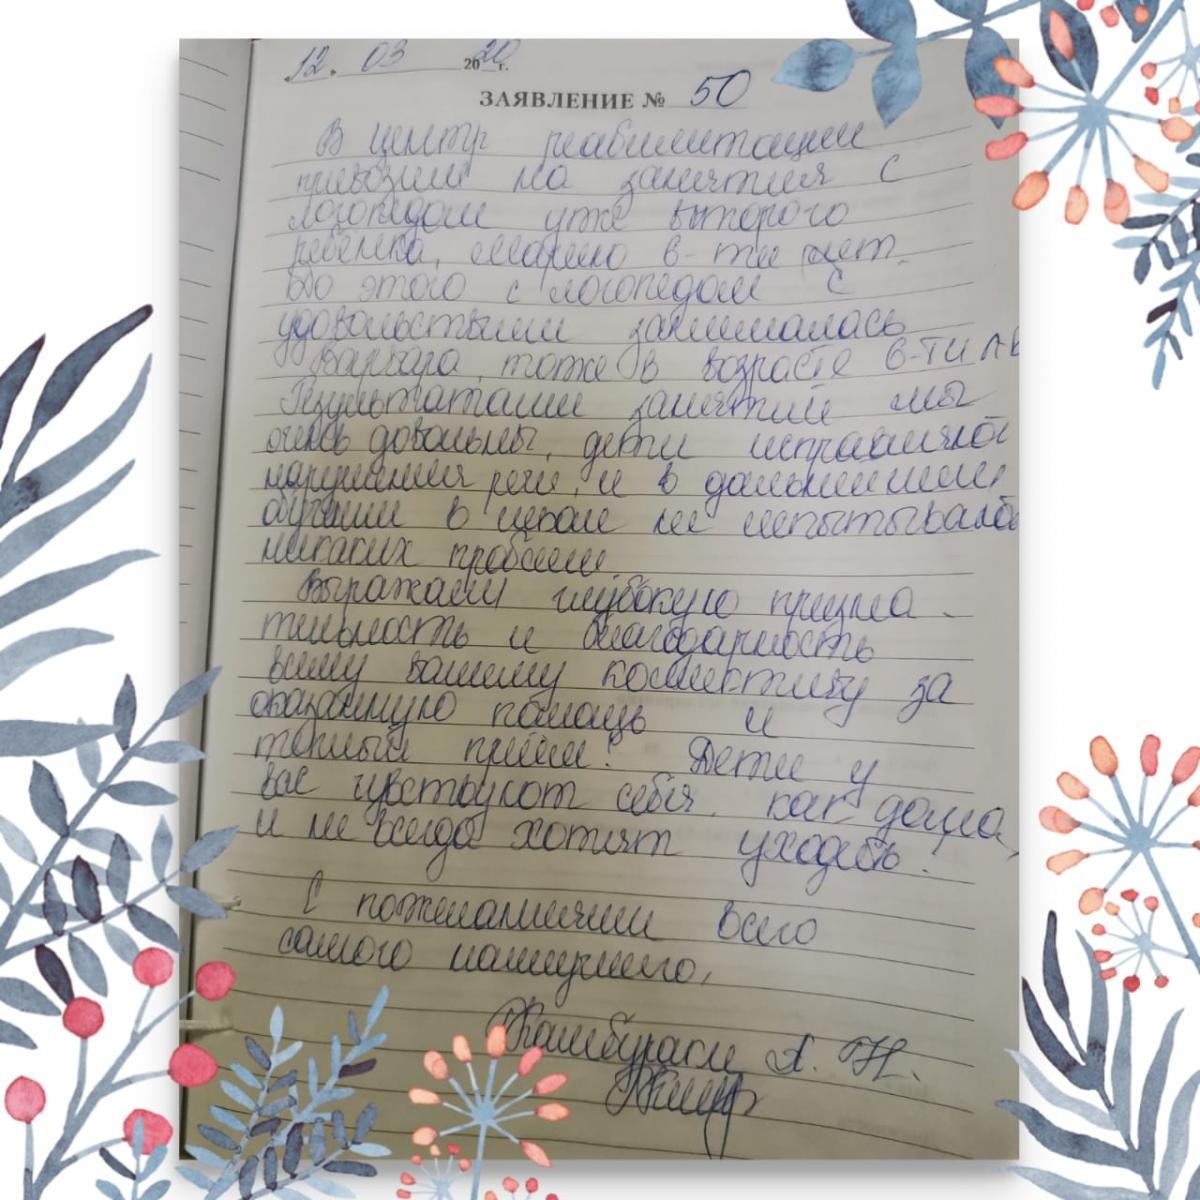 12. 03 2020 г.
ЗАЯВЛЕНИЕ № 50
В центр реабилитации
привозим на занятия с
логопедом уже второго
ребёнка, 6-ти лет.
До этого с логопедом с
удовольствием занималась
Варвара, тоже в возрасте 6-ти л
Результатами занятий мы
очень довольны, дети исправляло
нарушения речи, и в дальнейшем
обучении в школе не испытывало
никаких проблем.
Выражаем глубокую призна-
тельность и благодарность
всему вашему коллективу за
оказанную помощь и
теплый приём! Дети у
вас чувствуют себя, как дома,
и не всегда хотят уходить.
С пожеланиями всего
самого наилучшего,
А. Н.